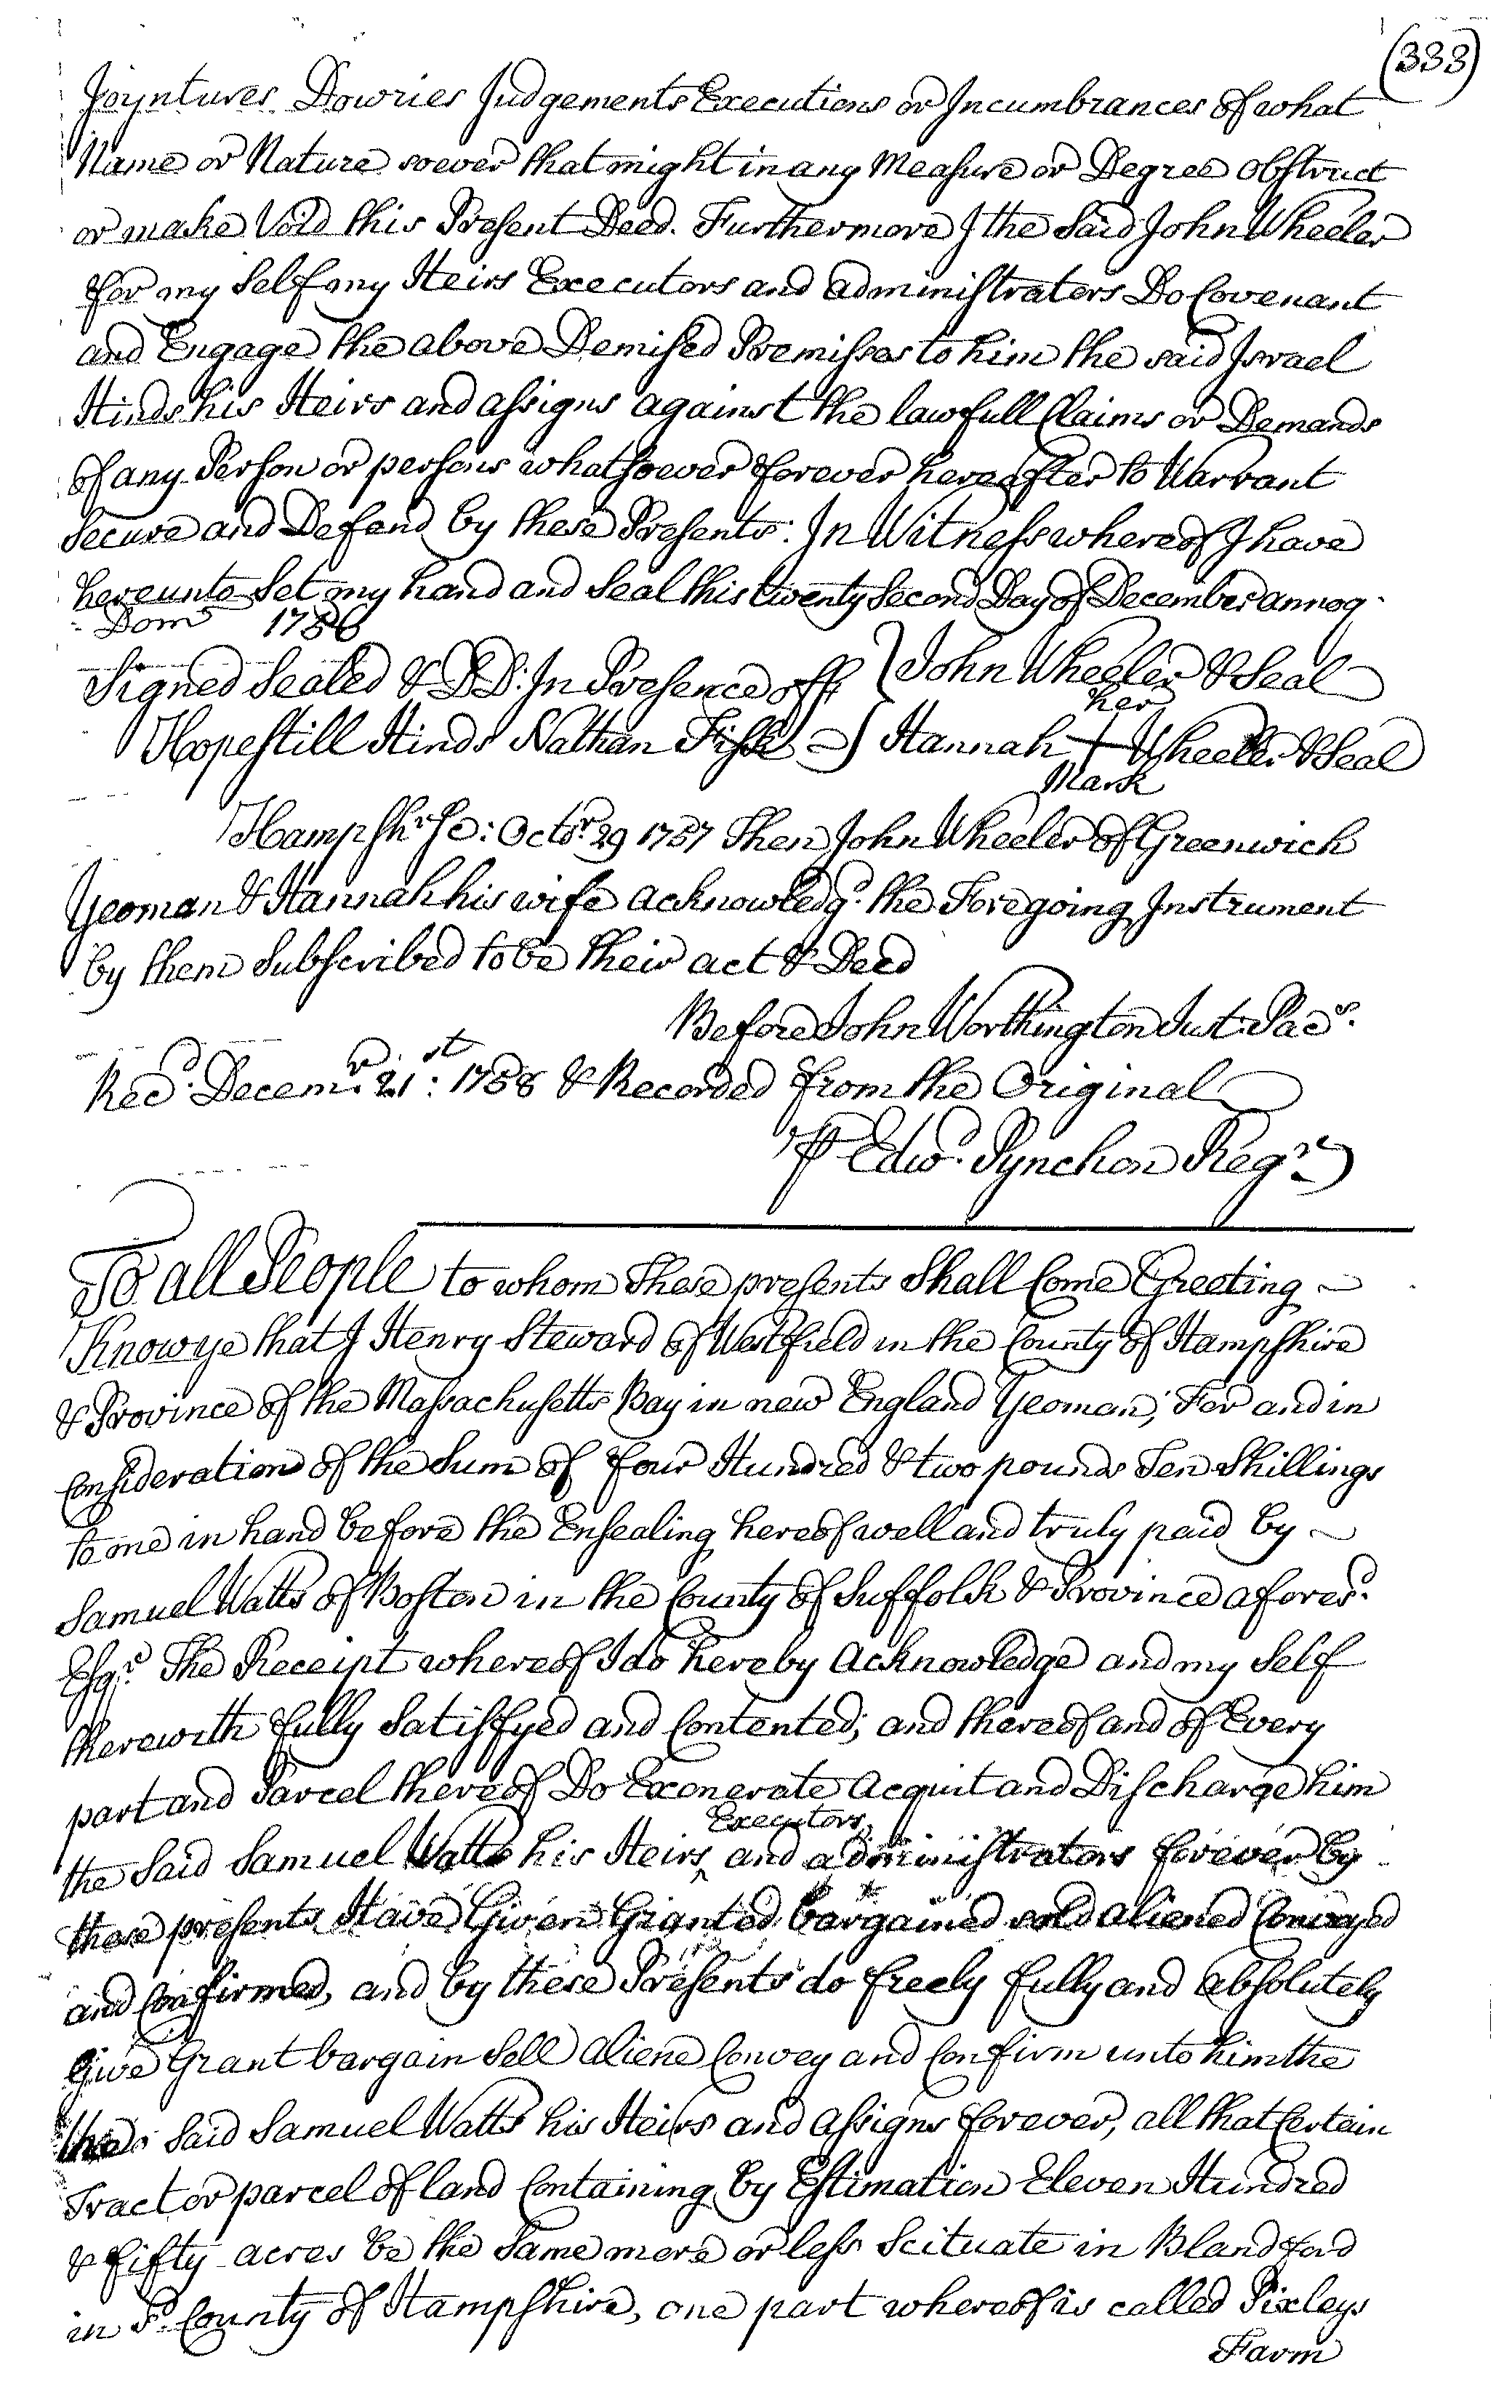 (333)
Joyntures Dowries Judgements Executions or Incumbrances of what
Name or Nature soever that might in any Measure or Degree obstruct
or make Void this Present Deed. Furthermore I the Said John Wheeler
for my Self my Heirs Executors and administraters Do Covenant
and Engage the above Demised Premisses to him the said Israel
Hinds his Heirs and assigns against the lawfull Claims or Demands
of any Person or persons whatsoever forever hereafter to Warrant
Secure and Defend by these Presents: In Witness whereof I have
hereunto Set my hand and Seal this twenty Second Day of December annoq
Dom 1756
Signed Sealed & DD: In Presence off } John Wheeler & Seal
her
Hopestill Hinds Nathan Fisk } Hannah + Wheeler & Seal
Mark
Hampshr Sc: Octor 29 1757 Then John Wheeler of Greenwich
Yeoman & Hannah his wife acknowledgd the Foregoing Instrument
by them Subscribed to be their act & Deed
Before John Worthington Just: Pacs.
Recd. Decemr 21st: 1758 & Recorded from the Original
P Edwd. Pynchon Regr
To all People to whom These presents Shall Come Greeting
Know ye that I Henry Steward of Westfield in the County of Hampshire
& Province of the Massachusetts Bay in new England Yeoman, For and in
Consideration of the Sum of four Hundred & two pounds Ten Shillings
to me in hand before the Ensealing hereof well and truly paid by
Samuel Watts of Boston in the County of Suffolk & Province afores.d
Esqr. The Receipt whereof I do hereby acknowledge and my Self
therewith fully Satisfyed and Contented; and thereof and of Every
part and Parcel thereof Do Exonerate acquit and Discharge him
Executors
the Said Samuel Watts his Heirs ^ and administrators forever by
these presents Have Given Granted bargained sold aliened Conveyed
and Confirmed, and by these Presents do freely fully and absolutely
Give Grant bargain Sell aliene Convey and Confirm unto him the
the Said Samuel Watts his Heirs and assigns forever, all that Certain
Tract or parcel of land Containing by Estimation Eleven Hundred
& fifty acres be the Same more or less Scituate in Blandford
in Sd. County of Hampshire, one part whereof is called Pixleys
Farm